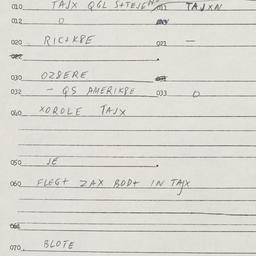 010 TAJX QGL S+TEJEN 011 TAJXN
012 O
020 RIC+KBE 021 —
030 OZBERE
032 – QS AMERIKBE 033 O
040 XOROLE TAJX
050 JE
060 FLEG+ ZAX BOD+ IN TAJX
070 BLOTE